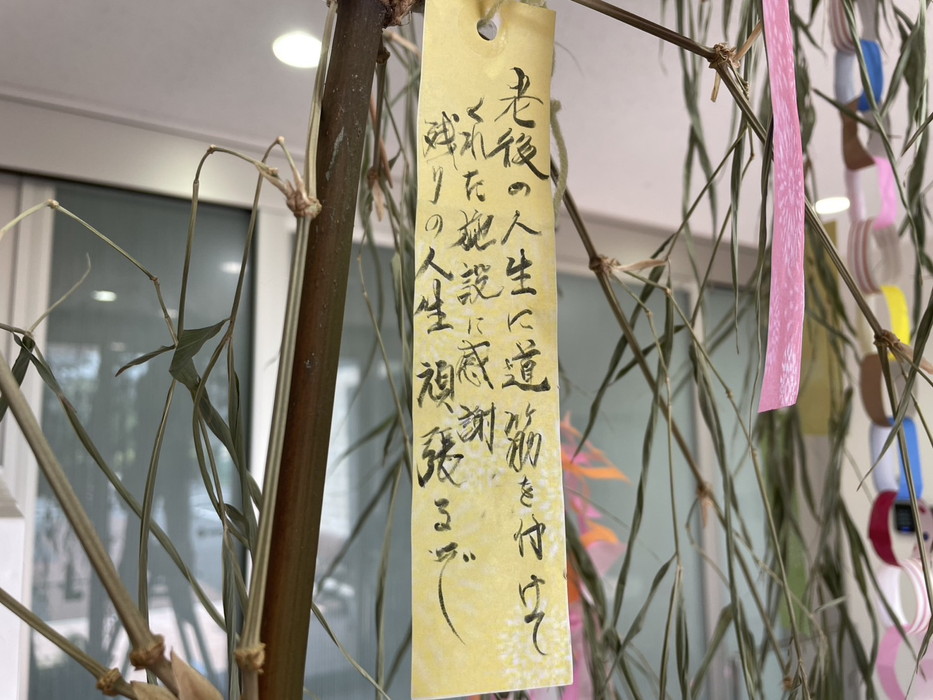 老後の人生に道筋を付けて
くれた施設に感謝
残りの人生頑張るぞ